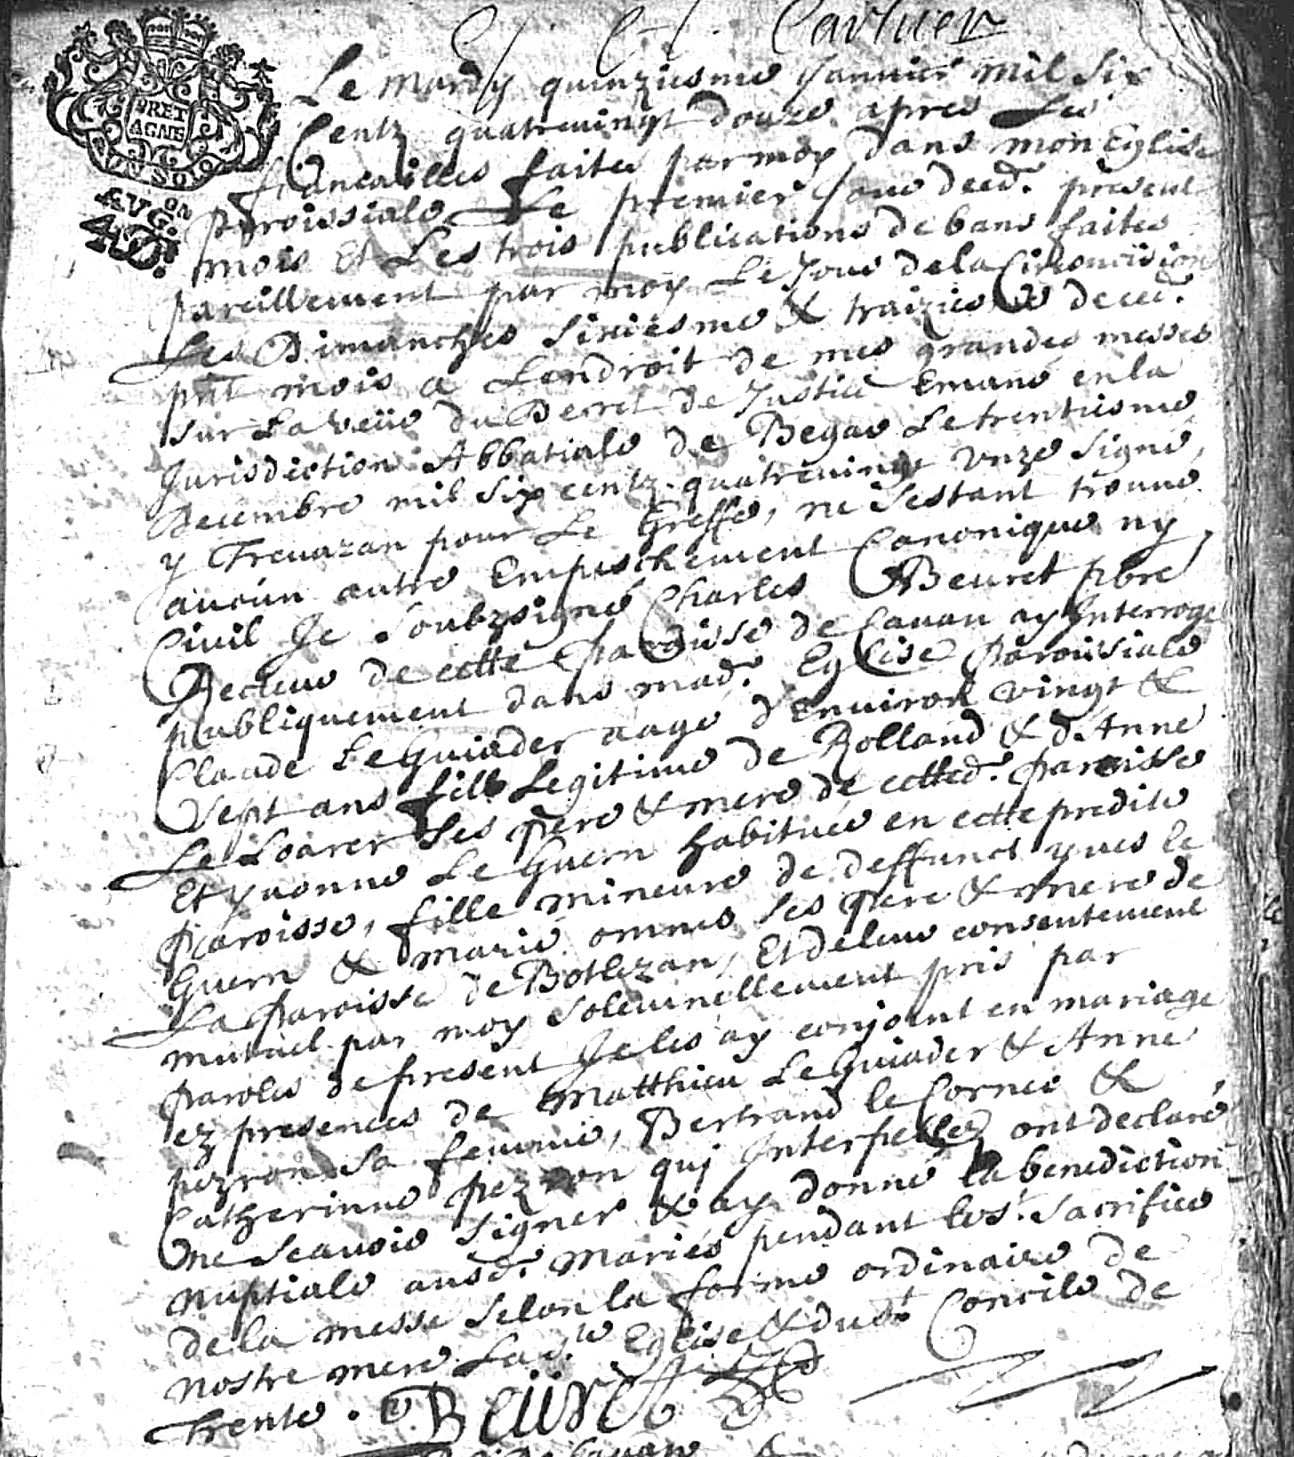 Carluer
BRET
AGNE
VN SOL
AVG.on
4 D.
Le mardy quinziesme Janvier mil Six
Centz quatrevingt douze apres Les
fiancailles faites par moy dans mon Eglise
paroissiale Le premier Jour decd. present
mois Et Les trois publications de bans faites
pareillement par moy Le Jour de la Circoncision
Les Dimanches Sixiesme & traiziesme decd.
pnt mois a Lendroit de mes grandes messes
sur La veüe du Decret de Justice Emané en la
Jurisdiction Abbatiale de Begar Le trentiesme
Decembre mil Six centz quatrevingt unze Signé,
y Trevazan pour Le Greffe, ne Sestant trouvé
aucun autre Empeschement Canonique ny
Civil Je Soubzsigné Charles Beuret pbre
Recteur de cette Paroisse de Cavan ay Interrogé
publiquement dans mad. Eglise Paroissiale
Claude Le Guiader aagé d'environ vingt &
Sept ans fils Legitime de Rolland & d'Anne
Le Loarer Ses Pere & mere de cetted. paroisse
Et yvonne Le Guern habituée en cette predite
Paroisse, fille mineure de deffunct yves le
Guern & marie omnes Ses Pere & mere de
La Paroisse de Botlezan, Et de leur consentement
mutuel par moy Solemnellement pris par
paroles de present Je les ay conjoint en mariage
ez presences de Matthieu Le Guiader & Anne
pezron Sa femme, Bertrand le Cornec &
Catherinne pezron quj Interpellez ont declaré
ne Scavoir Signer & ay donné la benediction
nuptiale ausd. mariés pendant le st. Sacrifice
de la messe Selon la forme ordinaire de
nostre mere La ste Eglise & du st Concile de
Trente. Beüret